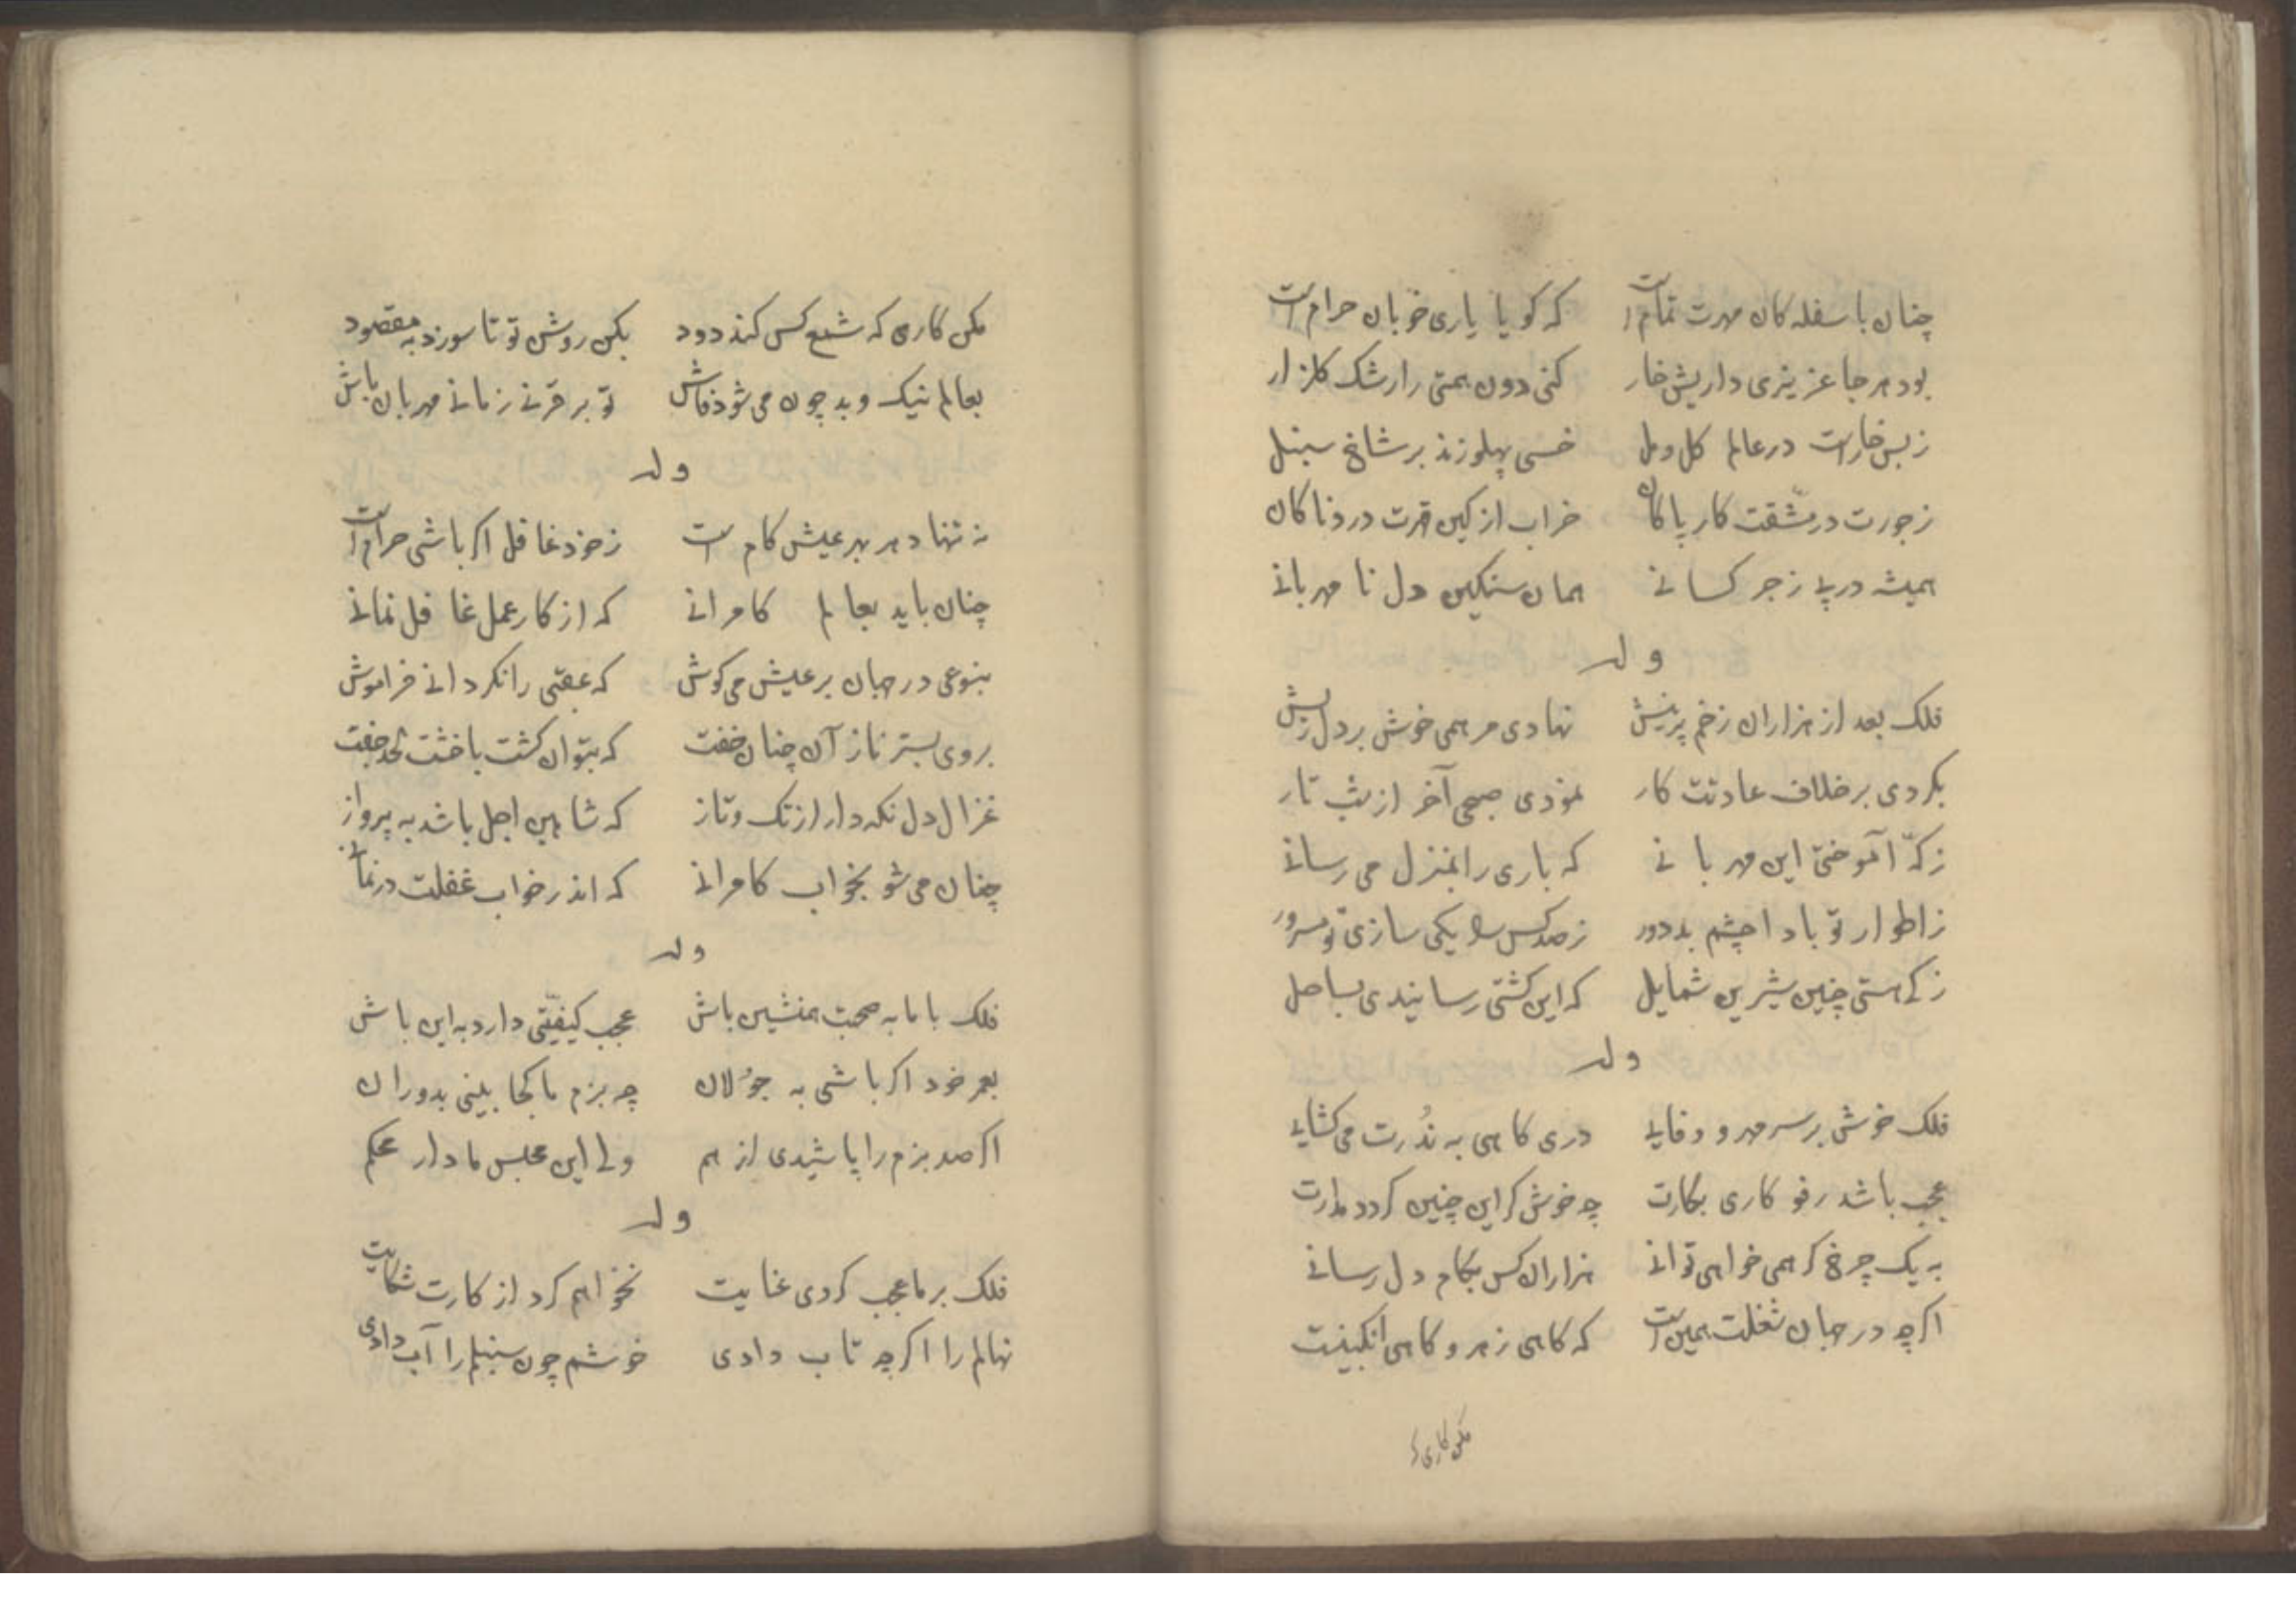 چنان با سفله کان مهرت تمام است که کویا یاری خوبان حرام است
بود هر جا عزیزی داریش خار کنی دون همتی را رشک کلزار
زبس خار است در عالم کل و مل خسی پهلو زند بر شاخ سنبل
زجورت در مشقت کار پاکان خراب از کین قهرت دردناکان
همیشه در پے زجر کسانے همان سنکین دل نا مهربانے
وله
فلک بعد از هزاران زخم پر نیش نهادی مرهمی خوش بر دل ریش
بکردی بر خلاف عادتت کار نمودی صبحی آخر از شب تار
زکه آموختی این مهربانے که باری را بمنزل می رسانے
زاطوار تو بادا چشم بد دور زصد کس را یکی سازی تو مسرور
زکے هستی چنین شیرین شمایل که این کشتی رسانیدی بساحل
وله
فلک خوش بر سر مهر و وفایے دری کاهی به نُدرت می کشایے
عجب باشد رفو کاری بکارت چه خوش کر این چنین کردد مدارت
به یک چرخ کر همی خواهی توانے هزاران کس بکام دل رسانے
اکرچه در جهان شغلت همین است که کاهی زهر و کاهی انکبینت
مکن کاری که
مکن کاری که شمع کس کند دود بکن روشن تو تا سوزد به مقصود
بعالم نیک و بد چون می شود فاش تو بر قرنے زمانے مهربان باش
وله
نه تنها دهر بهر عیش کام است زخود غافل اکر باشی حرام است
چنان باید بعالم کامرانے که از کار عمل غافل نمانے
بنوعی در جهان بر عیش می کوش که عقبی را نکردانے فراموش
بروی بستر ناز آن چنان خفت که بتوان کشت با خشت لحد جفت
غزال دل نکه دار از تک و تاز که شاهین اجل باشد به پرواز
چنان می شو بخواب کامرانے که اندر خواب غفلت در نمانے
وله
فلک با ما به صحبت همنشین باش عجب کیفیّتی دارد به این باش
بعمر خود اکر باشی به جوُلان چه بزم ما کجا بینی بدوران
اکر صد بزم را پاشیدی از هم ولے این مجلس ما دار محکم
وله
فلک بر ما عجب کردی عنایت نخواهم کرد از کارت شکایت
نهالم را اکرچه تاب دادی خوشم چون سنبلم را آب دادی